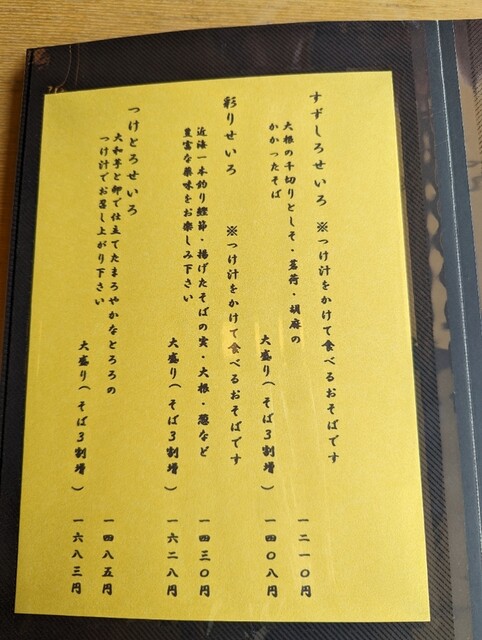 すずしろせいろ　※つけ汁をかけて食べるおそばです
大根の千切りとしそ・茗荷・胡麻の
かかったそば
一二一〇円
大盛り（そば３割増）　一四〇八円
彩りせいろ　※つけ汁をかけて食べるおそばです
近海一本釣り鰹節・揚げたそばの実・大根・葱など
豊富な薬味をお楽しみ下さい
一四三〇円
大盛り（そば３割増）　一六二八円
つけとろせいろ
大和芋と卵で仕立てたまろやかなとろろの
つけ汁でお召し上がり下さい
一四八五円
大盛り（そば３割増）　一六八三円